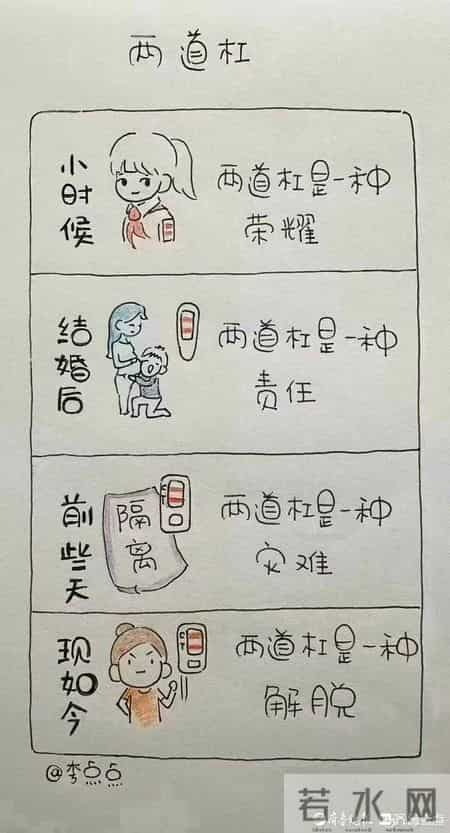 两道杠
小时候
两道杠是一种
荣耀
结婚后
两道杠是一种
责任
前些天
隔离
两道杠是一种
灾难
现如今
两道杠是一种
解脱
@李点点
若水网